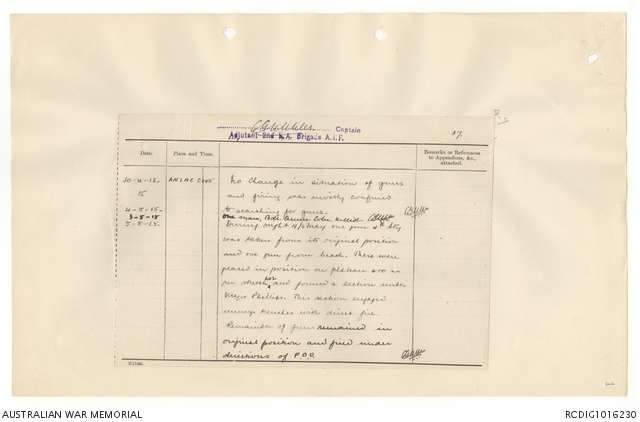 Captain
Adjutant 2nd F.A. Brigade A.I.F.
17.
Date. Place and Time. Remarks or References to Appendices, &c., attached.
30-4-15. ANZAC COVE No change in situation of guns
to and firing was mostly confined
4-5-15. to searching for guns.
3-5-15 One man, Killed
5-5-15. During night 4/5 May one gun 4th Bty
was taken from its original position
and one gun from beach. These were
placed in position on plateau 400 as
per sketch and formed a section under
Major Phillips. This section engaged
enemys trenches with direct fire
Remainder of guns remained in
original position and fired under
directions of F.O.O.
AUSTRALIAN WAR MEMORIAL
RCDIG1016230